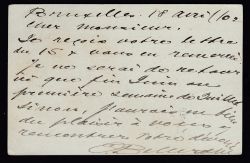 Bruxelles. 18 avril /02
Cher monsieur.
Je reçois votre lettre
du 15 & vous en remercie.
Je ne serai de retour
ici que fin Juin ou
première semaine de Juillet
sinon, j'aurais eu bien
du plaisir à vous
rencontrer